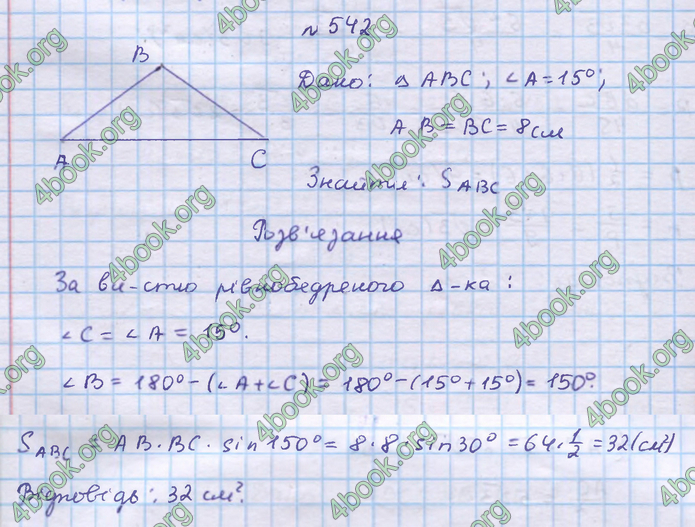 № 542
B
Дано: △ ABC; ∠A = 15°;
AB = BC = 8 см
A
C
Знайти: S ABC
Розв'язання
За вл-стю рівнобедреного △-ка:
∠C = ∠A = 15°.
∠B = 180° - (∠A + ∠C) = 180° - (15° + 15°) = 150°.
S ABC = AB · BC · sin 150° = 8 · 8 · sin 30° = 64 · 1/2 = 32 (см²)
Відповідь: 32 см².
4book.org